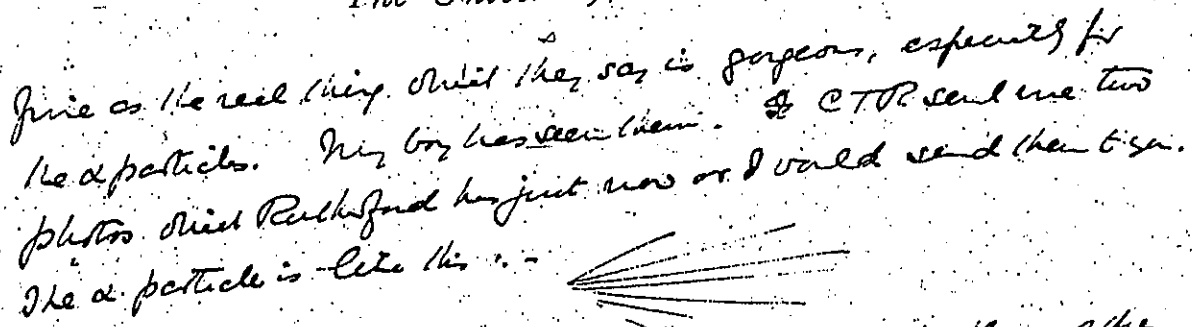 The
fine as the real thing which they say is gorgeous, especially for
the α particles. My boy has seen them. CTR sent me two
photos which Rutherford has just now or I would send them to you.
The α particle is like this :-